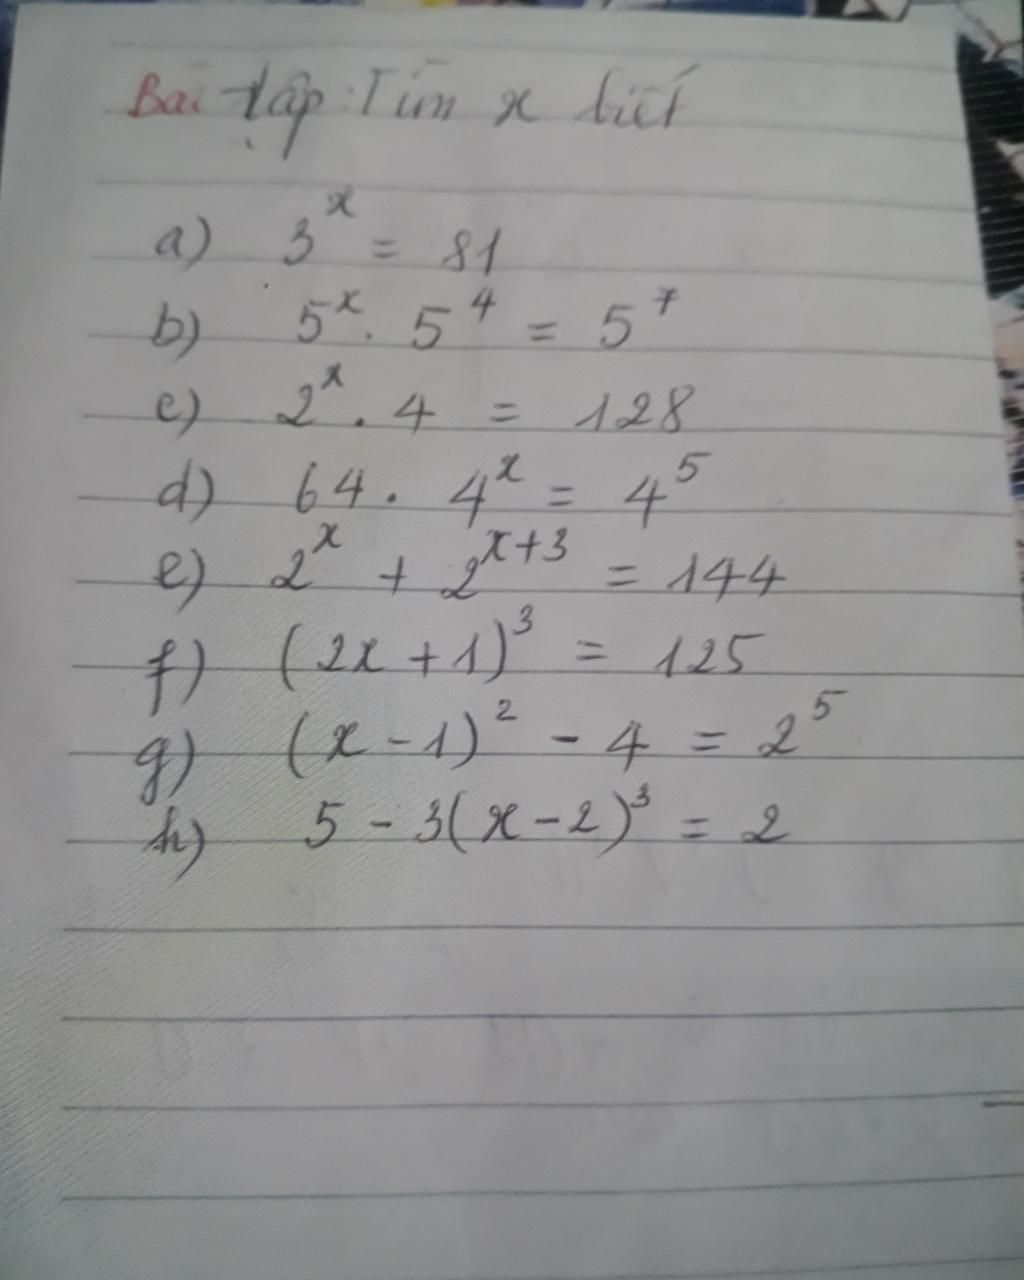 Bài tập: Tìm x biết
a) 3^x = 81
b) 5^x . 5^4 = 5^7
c) 2^x . 4 = 128
d) 64 . 4^x = 4^5
e) 2^x + 2^{x+3} = 144
f) (2x + 1)^3 = 125
g) (x - 1)^2 - 4 = 2^5
h) 5 - 3(x - 2)^3 = 2